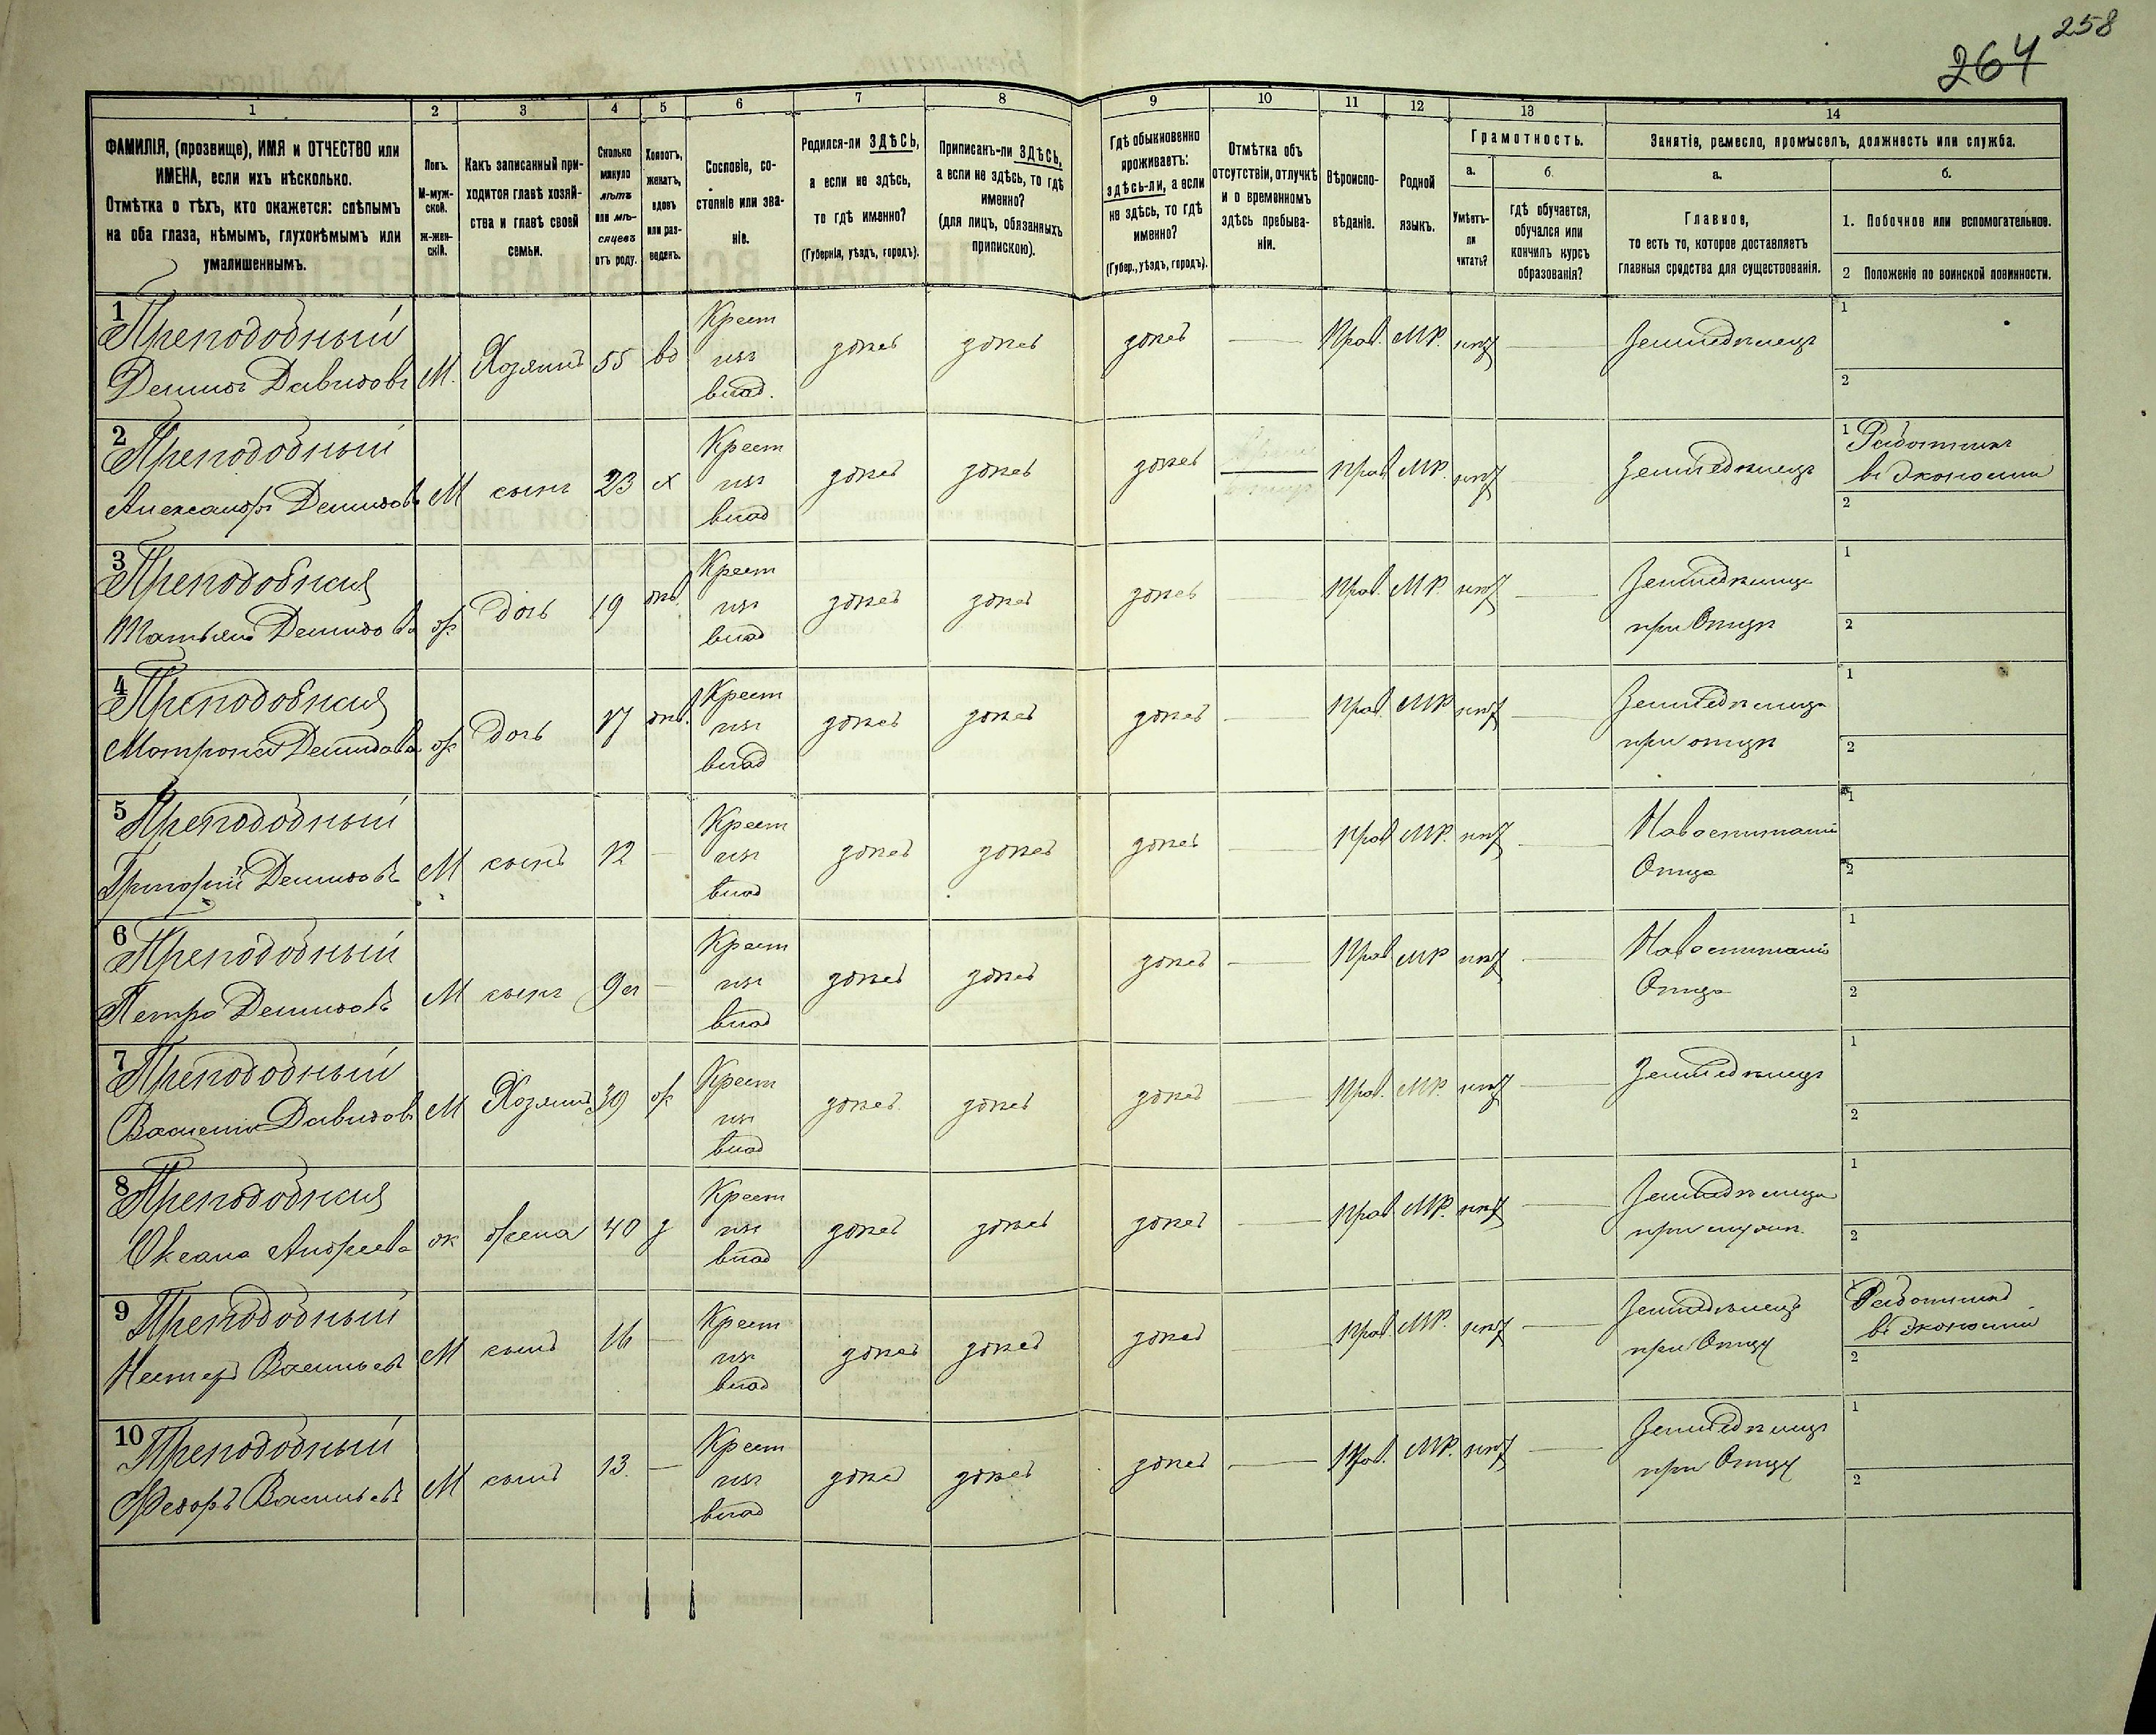 258
264
1 2 3 4 5 6 7 8 9 10 11 12 13 14
ФАМИЛІЯ, (прозвище), ИМЯ и ОТЧЕСТВО или
ИМЕНА, если ихъ нѣсколько.
Отмѣтка о тѣхъ, кто окажется: слѣпымъ
на оба глаза, нѣмымъ, глухонѣмымъ или
умалишеннымъ.
Полъ.
М-муж-
ской.
Ж-жен-
скій.
Какъ записанный при-
ходится главѣ хозяй-
ства и главѣ своей
семьи.
Сколько
минуло
лѣтъ
или мѣ-
сяцевъ
отъ роду.
Холостъ,
женатъ,
вдовъ
или раз-
веденъ.
Сословіе, со-
стояніе или зва-
ніе.
Родился-ли ЗДѢСЬ,
а если не здѣсь,
то гдѣ именно?
(Губернія, уѣздъ, городъ).
Приписанъ-ли ЗДѢСЬ,
а если не здѣсь, то гдѣ
именно?
(для лицъ, обязанныхъ
припискою).
Гдѣ обыкновенно
проживаетъ:
здѣсь-ли, а если
не здѣсь, то гдѣ
именно?
(Губер., уѣздъ, городъ).
Отмѣтка объ
отсутствіи, отлучкѣ
и о временномъ
здѣсь пребыва-
ніи.
Вѣроиспо-
вѣданіе.
Родной
языкъ.
Грамотность.
а.
Умѣетъ-
ли
читать?
б.
гдѣ обучается,
обучался или
кончилъ курсъ
образованія?
Занятіе, ремесло, промыселъ, должность или служба.
а.
Главное,
то есть то, которое доставляетъ
главныя средства для существованія.
б.
1. Побочное или вспомогательное.
2 Положеніе по воинской повинности.
1
Преподобный
Демидъ Давидовъ
М.
Хозяинъ
55
вд
Крест
изъ
влад.
здѣсь
здѣсь
здѣсь
Прав.
МР.
нѣтъ
Земледѣлецъ
1
2
2
Преподобный
Александръ Демидовъ
М
сынъ
23
х
Крест
изъ
влад
здѣсь
здѣсь
здѣсь
прав
МР.
нѣтъ
Земледѣлецъ
1 Работникъ
въ Экономіи
2
3
Преподобная
Татьяна Демидова
ж
дочь
19
дѣв.
Крест
изъ
влад
здѣсь
здѣсь
здѣсь
Прав.
МР.
нѣтъ
Земледѣлица
при Отцѣ
1
2
4
Преподобная
Матрона Демидова
ж
дочь
17
дѣв.
Крест
изъ
влад
здѣсь
здѣсь
здѣсь
Прав.
МР
нѣтъ
Земледѣлица
при отцѣ
1
2
5
Преподобный
Григорій Демидовъ
М
сынъ
12
Крест
изъ
влад
здѣсь
здѣсь
здѣсь
Прав
МР.
нѣтъ
На воспитаніи
Отца
1
2
6
Преподобный
Петро Демидовъ
М
сынъ
9
Крест
изъ
влад
здѣсь
здѣсь
здѣсь
Прав
МР
нѣтъ
На воспитаніи
Отца
1
2
7
Преподобный
Василій Давидовъ
М
Хозяинъ
39
ж
Крест
изъ
влад
здѣсь
здѣсь
здѣсь
Прав.
МР.
нѣтъ
Земледѣлецъ
1
2
8
Преподобная
Оксана Андреева
ж
жена
40
з
Крест
изъ
влад
здѣсь
здѣсь
здѣсь
Прав
МР.
нѣтъ
Земледѣлица
при мужѣ
1
2
9
Преподобный
Нестеръ Васильевъ
М
сынъ
16
Крест
изъ
влад
здѣсь
здѣсь
здѣсь
Прав.
МР.
нѣтъ
Земледѣлецъ
при Отцѣ
1 Работникъ
въ Экономіи
2
10
Преподобный
Федоръ Васильевъ
М
сынъ
13.
Крест
изъ
влад
здѣсь
здѣсь
здѣсь
Прав.
МР.
нѣтъ
Земледѣлецъ
при Отцѣ
1
2